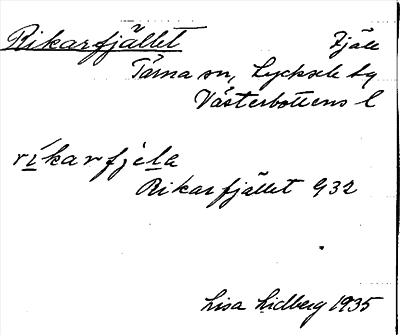 Rikarfjället Fjäll
Tärna sn, Lycksele lg
Västerbottens l
ríkarfjela
Rikarfjället 932
Lisa Lidberg 1935